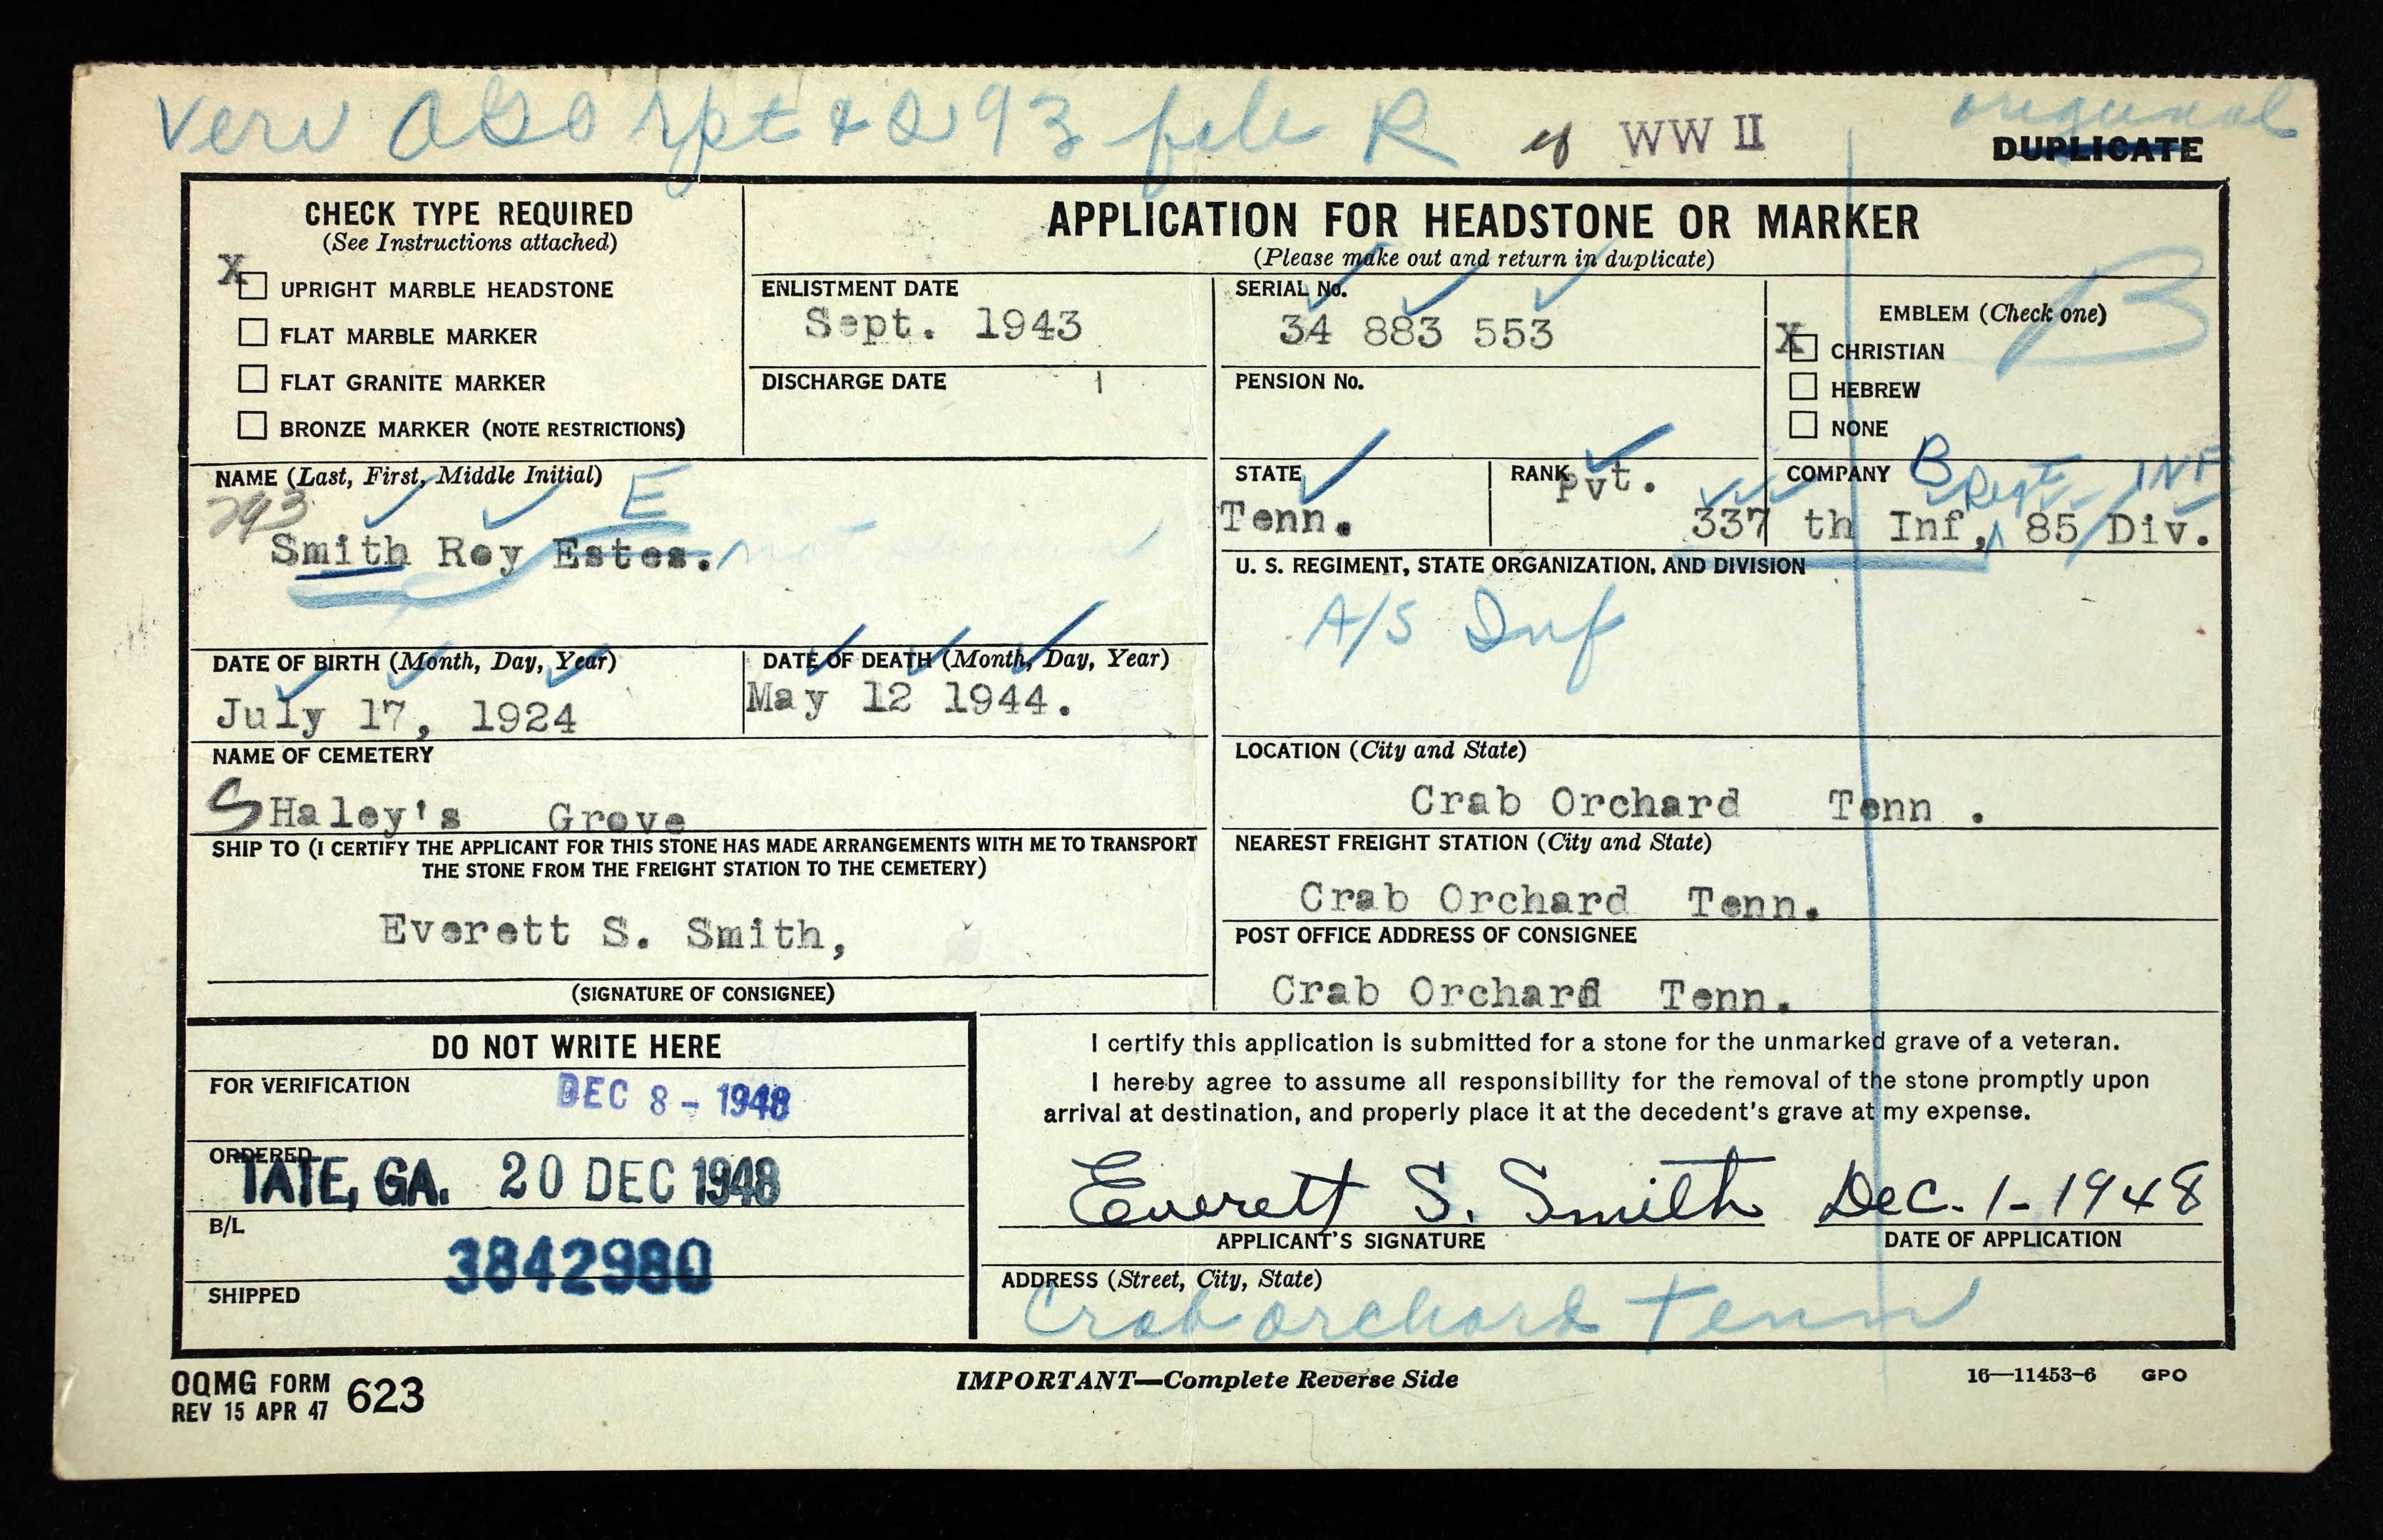 Veri AGO rpt & 293 file R
WW II
original
DUPLICATE
CHECK TYPE REQUIRED
(See Instructions attached)
X
UPRIGHT MARBLE HEADSTONE
FLAT MARBLE MARKER
FLAT GRANITE MARKER
BRONZE MARKER (NOTE RESTRICTIONS)
APPLICATION FOR HEADSTONE OR MARKER
(Please make out and return in duplicate)
ENLISTMENT DATE
Sept. 1943
DISCHARGE DATE
SERIAL No.
34 883 553
PENSION No.
EMBLEM (Check one)
B
X
CHRISTIAN
HEBREW
NONE
NAME (Last, First, Middle Initial)
293
E
Smith Roy Estes.
STATE
Tenn.
RANK
Pvt.
COMPANY B Regt INF
337 th Inf, 85 Div.
U. S. REGIMENT, STATE ORGANIZATION, AND DIVISION
A/S Inf
DATE OF BIRTH (Month, Day, Year)
July 17, 1924
DATE OF DEATH (Month, Day, Year)
May 12 1944.
NAME OF CEMETERY
S Haley's Grove
LOCATION (City and State)
Crab Orchard Tenn .
SHIP TO (I CERTIFY THE APPLICANT FOR THIS STONE HAS MADE ARRANGEMENTS WITH ME TO TRANSPORT
THE STONE FROM THE FREIGHT STATION TO THE CEMETERY)
Everett S. Smith,
(SIGNATURE OF CONSIGNEE)
NEAREST FREIGHT STATION (City and State)
Crab Orchard Tenn.
POST OFFICE ADDRESS OF CONSIGNEE
Crab Orchard Tenn.
DO NOT WRITE HERE
FOR VERIFICATION
DEC 8 - 1948
ORDERED
TATE, GA. 20 DEC 1948
B/L
3842980
SHIPPED
I certify this application is submitted for a stone for the unmarked grave of a veteran.
I hereby agree to assume all responsibility for the removal of the stone promptly upon
arrival at destination, and properly place it at the decedent's grave at my expense.
Everett S. Smith Dec. 1-1948
APPLICANT'S SIGNATURE
DATE OF APPLICATION
ADDRESS (Street, City, State)
Crab orchard Tenn
OQMG FORM 623
REV 15 APR 47
IMPORTANT—Complete Reverse Side
16—11453-6 GPO